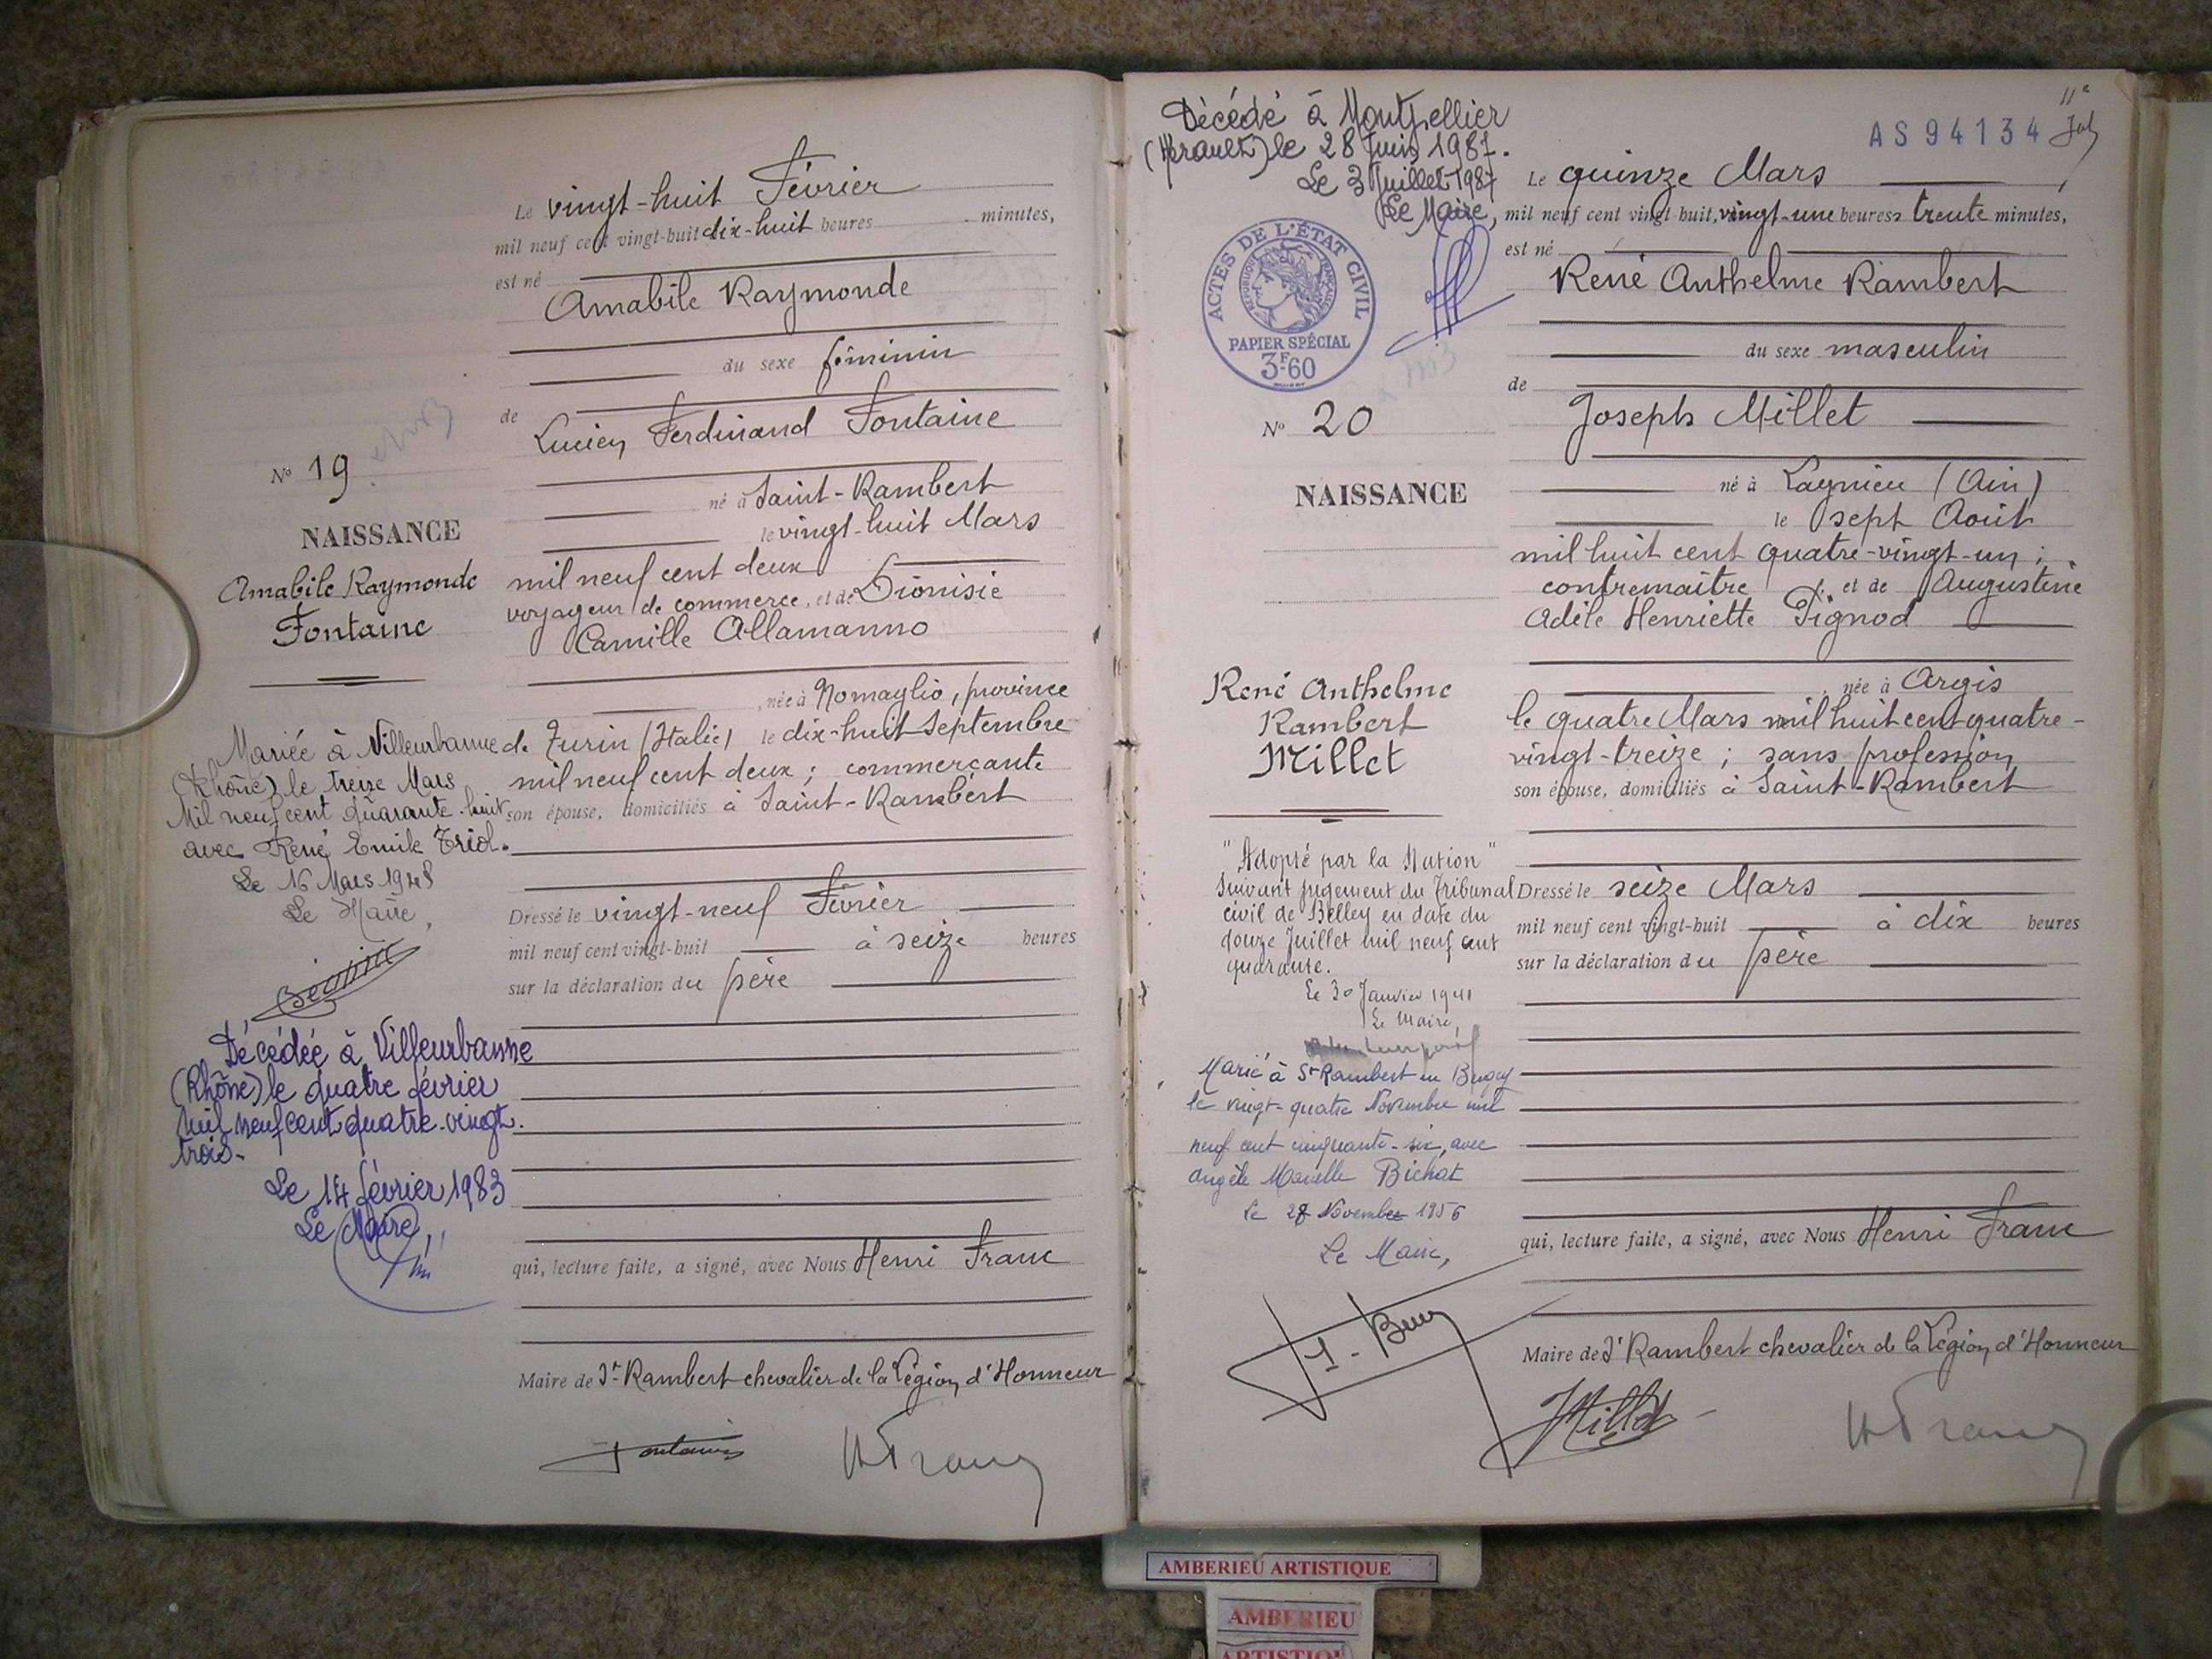 Le vingt-huit Février
mil neuf cent vingt-huit dix-huit heures minutes,
est né
Amabile Raymonde
du sexe féminin
de
Lucien Ferdinand Fontaine
né à Saint-Rambert
le vingt-huit Mars
mil neuf cent deux
voyageur de commerce, et de Dionisie
Camille Allamanno
née à Nomaglio, province
de Turin (Italie) le dix-huit Septembre
mil neuf cent deux ; commerçante
son épouse, domiciliés à Saint-Rambert
Dressé le vingt-neuf Février
mil neuf cent vingt-huit à seize heures
sur la déclaration du père
qui, lecture faite, a signé, avec Nous Henri Franc
Maire de St Rambert chevalier de la Légion d'Honneur
Fontaine
H Franc
No 19
NAISSANCE
Amabile Raymonde
Fontaine
Mariée à Villeurbanne
(Rhône) le treize Mars
Mil neuf cent quarante-huit
avec René Emile Triol.
Le 16 Mars 1948
Le Maire,
Décédée à Villeurbanne
(Rhône) le quatre février
mil neuf cent quatre-vingt-
trois-
Le 14 février 1983
Le Maire,
Décédé à Montpellier
(Hérault) le 28 Juin 1987.
Le 3 Juillet 1987
Le Maire,
ACTES DE L'ÉTAT CIVIL
RÉPUBLIQUE FRANÇAISE
PAPIER SPÉCIAL
3F60
No 20
NAISSANCE
René Anthelme
Rambert
Millet
"Adopté par la Nation"
suivant jugement du Tribunal
civil de Belley en date du
douze Juillet mil neuf cent
quarante.
Le 30 Janvier 1941
Le Maire,
Marié à St Rambert en Bugey
le vingt-quatre Novembre mil
neuf cent cinquante-six, avec
Angèle Marcelle Bichat
Le 28 Novembre 1956
Le Maire,
AS94134
11e
Le quinze Mars
mil neuf cent vingt-huit, vingt-une heures trente minutes,
est né
René Anthelme Rambert
du sexe masculin
de
Joseph Millet
né à Lagnieu (Ain)
le sept Août
mil huit cent quatre-vingt-un ;
contremaître, et de Augustine
Adèle Henriette Pignod
née à Argis
le quatre Mars mil huit cent quatre-
vingt-treize ; sans profession
son épouse, domiciliés à Saint-Rambert
Dressé le seize Mars
mil neuf cent vingt-huit à dix heures
sur la déclaration du père
qui, lecture faite, a signé, avec Nous Henri Franc
Maire de St Rambert chevalier de la Légion d'Honneur
JMillet
H Franc
AMBERIEU ARTISTIQUE
AMBERIEU
ARTISTIQUE